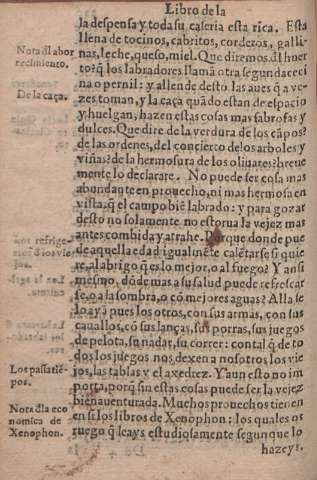 Libro de la
la despensa y toda su caseria esta rica. Esta
llena de tocinos, cabritos, corderos, galli-
nas, leche, queso, miel. Que diremos dl huer
to? q̃ los labradores llamã otra segunda ceci
na o pernil: y allende desto las aues q̃ a ve-
zes toman, y la caça quãdo estan de espacio
y huelgan, hazen estas cosas mas sabrosas y
dulces. Que dire de la verdura de los cãpos?
de las ordenes, del concierto de los arboles y
viñas? de la hermosura de los oliuares? breue
mente lo declarare. No puede ser cosa mas
abundante en prouecho, ni mas hermosa en
vista, q̃ el campo biẽ labrado: y para gozar
desto no solamente no estorua la vejez mas
antes combida y atrahe. Porque donde pue
de aquella edad igualmẽte calẽtarse si quie
re, al abrigo q̃ es lo mejor, o al fuego? Y ansi
mesmo, dõde mas a su salud puede refrescar
se, o a la sombra, o cõ mejores aguas? Alla se
lo ayã pues los otros, con sus armas, con sus
cauallos, cõ sus lanças, sus porras, sus juegos
de pelota, su nadar, su correr: con tal q̃ de to
dos los juegos nos dexen a nosotros los vie
jos, las tablas y el axedrez. Y aun esto no im
porta, porq̃ sin estas cosas puede ser la vejez
bienauenturada. Muchos prouechos tienen
en si los libros de Xenophon: los quales os
ruego q̃ leays estudiosamente segun que lo
hazeys.
Nota dl abor
recimiento.
De la caça.
Los refrige-
rios d los vie
jos.
Los passatiẽ-
pos.
Nota dla eco
nomica de
Xenophon.